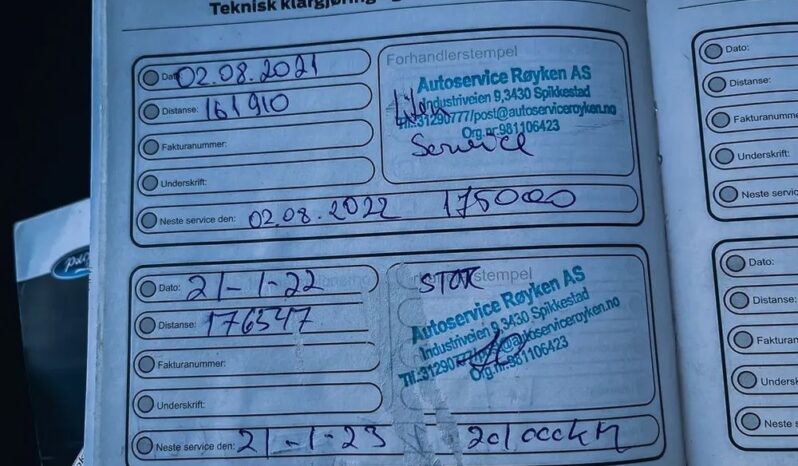 Teknisk klargjøring
Dato: 02.08.2021
Distanse: 161910
Fakturanummer:
Underskrift:
Neste service den: 02.08.2022 175000
Forhandlerstempel
Autoservice Røyken AS
Liten
Industriveien 9,3430 Spikkestad
Tlf.:31290777/post@autoserviceroyken.no
Org.nr.981106423
Service
Dato: 21-1-22
Distanse: 176547
Fakturanummer:
Underskrift:
Neste service den: 21-1-23
STOR
Autoservice Røyken AS
Industriveien 9,3430 Spikkestad
Org.nr.981106423
Dato:
Distanse:
Fakturanumme
Underskrift:
Neste servic
Dato:
Distanse:
Fakturan
Undersk
Neste s